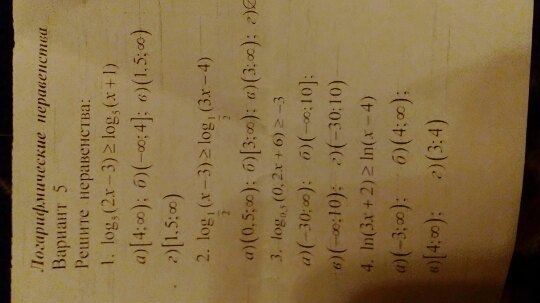 Логарифмические неравенства
Вариант 5
Решите неравенства:
1. log₅(2x−3) ≥ log₅(x+1)
а)[4;∞); б)(−∞;4]; в)(1,5;∞)
г)[1,5;∞)
2. log_{1/2}(x−3) ≥ log_{1/2}(3x−4)
а)(0,5;∞); б)[3;∞); в)(3;∞); г)∅
3. log_{0,5}(0,2x+6) ≥ −3
а)(−30;∞); б)(−∞;10];
в)(−∞;10); г)(−30;10)
4. ln(3x+2) ≥ ln(x−4)
а)(−3;∞); б)(4;∞);
в)[4;∞); г)(3;4)